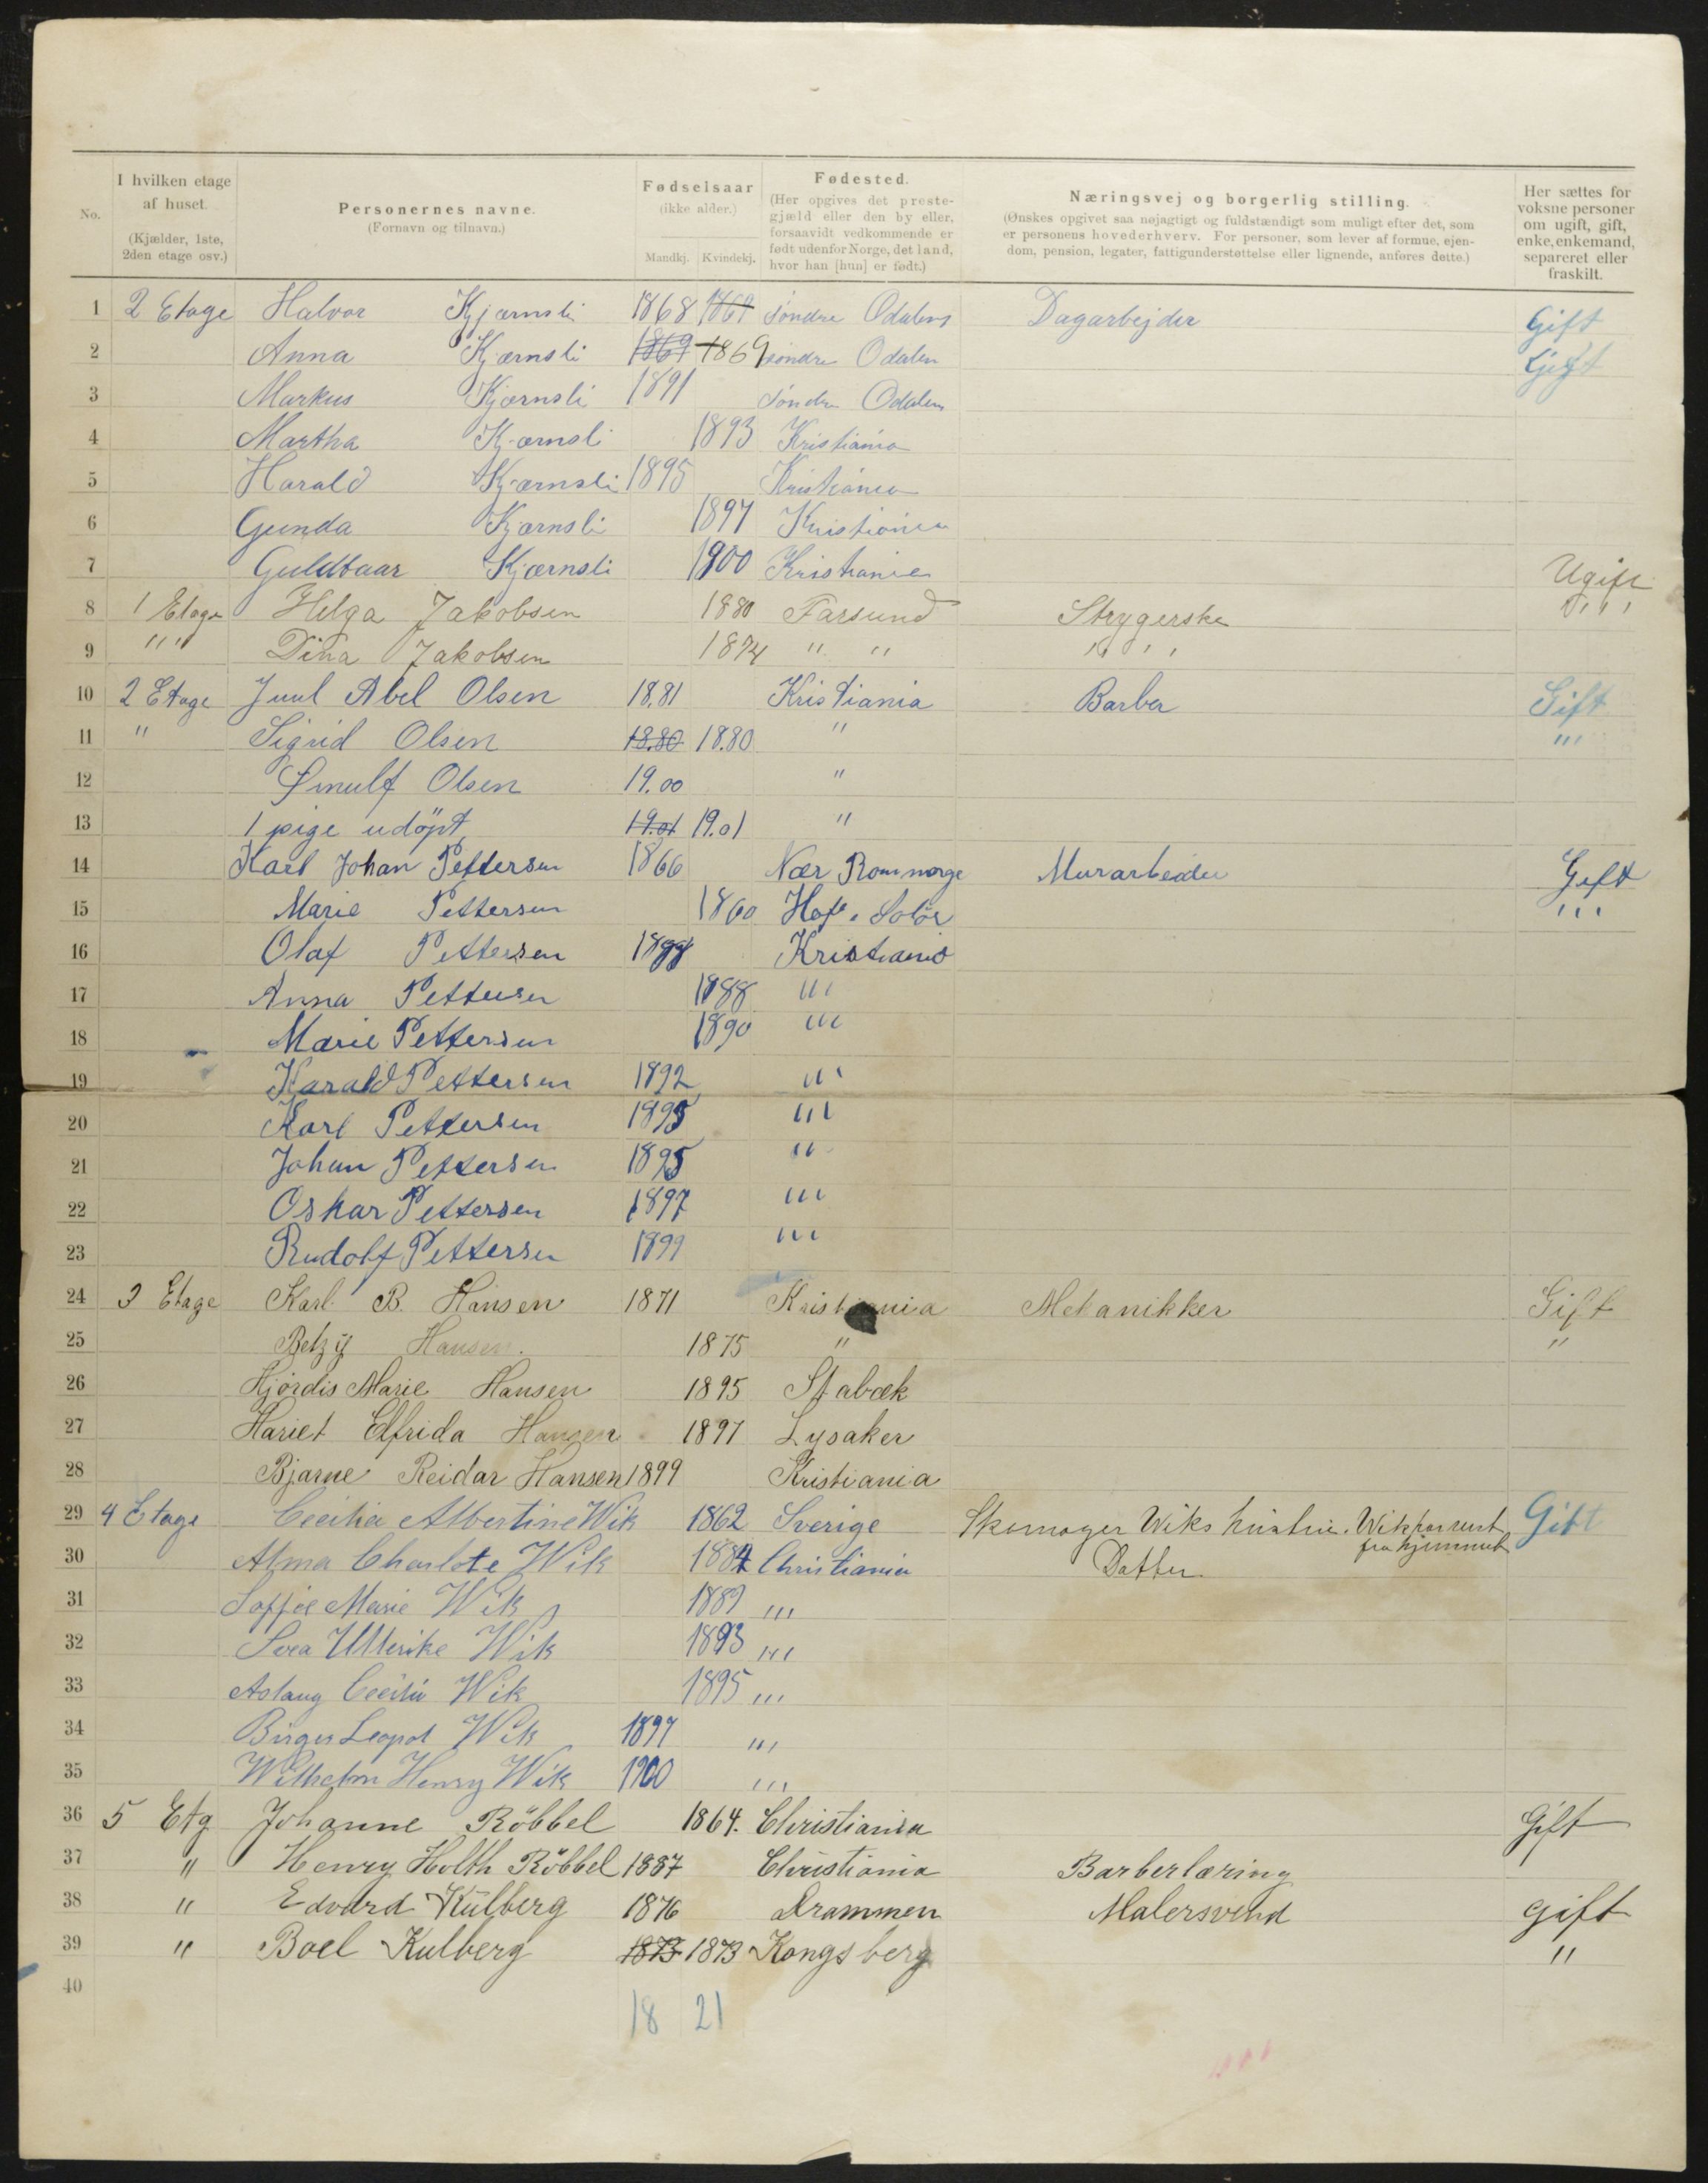 No. I hvilken etage af huset. (Kjælder, 1ste, 2den etage osv.) Personernes navne. (Fornavn og tilnavn.) Fødselsaar (ikke alder.) Mandkj. Kvindekj. Fødested. (Her opgives det prestegjæld eller den by eller, forsaavidt vedkommende er født udenfor Norge, det land, hvor han [hun] er født.) Næringsvej og borgerlig stilling. (Ønskes opgivet saa nøjagtigt og fuldstændigt som muligt efter det, som er personens hovederhverv. For personer, som lever af formue, ejendom, pension, legater, fattigunderstøttelse eller lignende, anføres dette.) Her sættes for voksne personer om ugift, gift, enke, enkemand, separeret eller fraskilt.
1 2 Etage Halvor Kjærnsli 1868 1869 Søndre Odalen Dagarbejder Gift
2 Anna Kjærnsli 1869 1869 søndre Odalen Gift
3 Markus Kjærnsli 1891 Søndre Odalen
4 Martha Kjærnsli 1893 Kristiania
5 Harald Kjærnsli 1895 Kristiania
6 Gunda Kjærnsli 1897 Kristiania
7 Guldbaar Kjærnsli 1900 Kristiania
Ugift
8 1 Etage Helga Jakobsen 1880 Farsund Strygerske " "
9 " " Dina Jakobsen 1874 " " " "
10 2 Etage Juul Abel Olsen 18.81 Kristiania Barber Gift
11 " Sigrid Olsen 18.80 18.80 " "
12 Ørnulf Olsen 19.00 "
13 1 pige udöpt 19.01 19.01 "
14 Karl Johan Pettersen 1866 Nær Romnorge Murarbeider Gift
15 Marie Pettersen 1860 Hof. Solör "
16 Olaf Pettersen Kristiania
17 Anna Pettersen 1888 "
18 Marie Pettersen 1890 "
19 Harald Pettersen 1892 "
20 Karl Pettersen 1895 "
21 Johan Pettersen 1895 "
22 Oskar Pettersen 1897 "
23 Rudolf Pettersen 1899 "
24 3 Etage Karl B. Hansen 1871 Kristiania Mekanikker Gift
25 Betzy Hansen. 1875 " "
26 Hjördis Marie Hansen 1895 Stabæk
27 Hariet Elfrida Hansen 1897 Lysaker
28 Bjarne Reidar Hansen 1899 Kristiania
29 4 Etage Cecilia Albertine Wik 1862 Sverige Skomager Wiks hustru. Wik forreist fra hjemmet Gift
30 Alma Charlote Wik 1884 Christiania Datter
31 Soffie Marie Wik 1889 "
32 Svea Ullerike Wik 1893 "
33 Aslaug Cecilie Wik 1895 "
34 Birger Leopol Wik 1897 "
35 Wilhelm Henry Wik 1900 "
36 5 Etg Johanne Röbbel 1864. Christiania Gift
37 " Henry Holth Röbbel 1887 Christiania Barberlæring
38 " Edvard Kulberg 1876 Drammen Malersvend gift
39 " Boel Kulberg 1873 1873 Kongsberg "
40
18 21